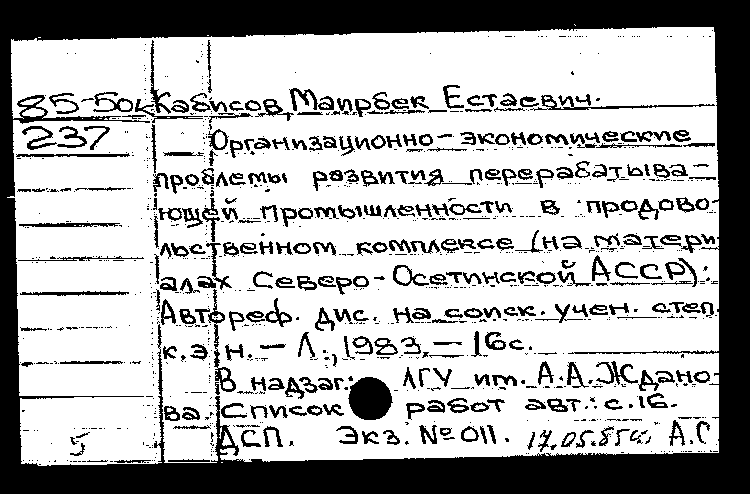 85-50к Кабисов, Маирбек Естаевич.
237 Организационно-экономические
проблемы развития перерабатыва-
ющей промышленности в продово-
льственном комплексе (на матери-
алах Северо-Осетинской АССР):
Автореф. дис. на соиск. учен. степ.
к.э.н. – Л., 1983. – 16с.
В надзаг.: ЛГУ им. А.А. Ждано-
ва. Список работ авт.: с.16.
5 ДСП. Экз. №011. 17.05.85г. А.С